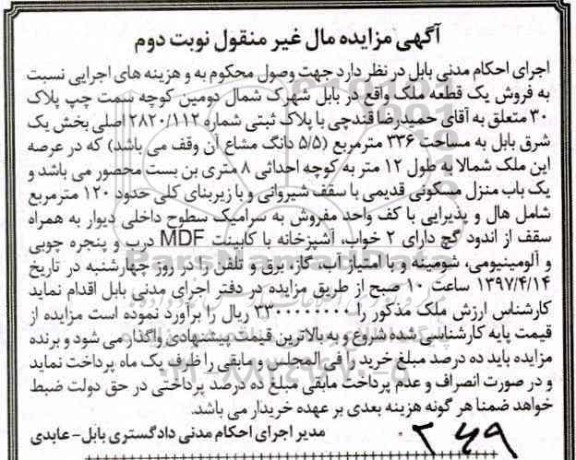 آگهی مزایده مال غیر منقول نوبت دوم
اجرای احکام مدنی بابل در نظر دارد جهت وصول محکوم به و هزینه های اجرایی نسبت
به فروش یک قطعه ملک واقع در بابل شهرک شمال دومین کوچه سمت چپ پلاک
۳۰ متعلق به آقای حمیدرضا قندچی با پلاک ثبتی شماره ۲۸۲۰/۱۱۲ اصلی بخش یک
شرق بابل به مساحت ۳۳۶ مترمربع (۵/۵ دانگ مشاع آن وقف می باشد) که در عرصه
این ملک شمالا به طول ۱۲ متر به کوچه احداثی ۸ متری بن بست محصور می باشد و
یک باب منزل مسکونی قدیمی با سقف شیروانی و با زیربنای کلی حدود ۱۲۰ مترمربع
شامل هال و پذیرایی با کف واحد مفروش به سرامیک سطوح داخلی دیوار به همراه
سقف از اندود گچ دارای ۲ خواب، آشپزخانه با کابینت MDF درب و پنجره چوبی
و آلومینیومی، شومینه و با امتیاز آب، گاز، برق و تلفن را در روز چهارشنبه در تاریخ
۱۳۹۷/۴/۱۴ ساعت ۱۰ صبح از طریق مزایده در دفتر اجرای مدنی بابل اقدام نماید
کارشناس ارزش ملک مذکور را ۳۳۰۰۰۰۰۰۰۰ ریال را برآورد نموده است مزایده از
قیمت پایه کارشناسی شده شروع و به بالاترین قیمت پیشنهادی واگذار می شود و برنده
مزایده باید ده درصد مبلغ خرید را فی المجلس و مابقی را ظرف یک ماه پرداخت نماید
و در صورت انصراف و عدم پرداخت مابقی مبلغ ده درصد پرداختی در حق دولت ضبط
خواهد شد ضمنا هر گونه هزینه بعدی بر عهده خریدار می باشد.
مدیر اجرای احکام مدنی دادگستری بابل- عابدی
۲۶۹
ParsNamadData